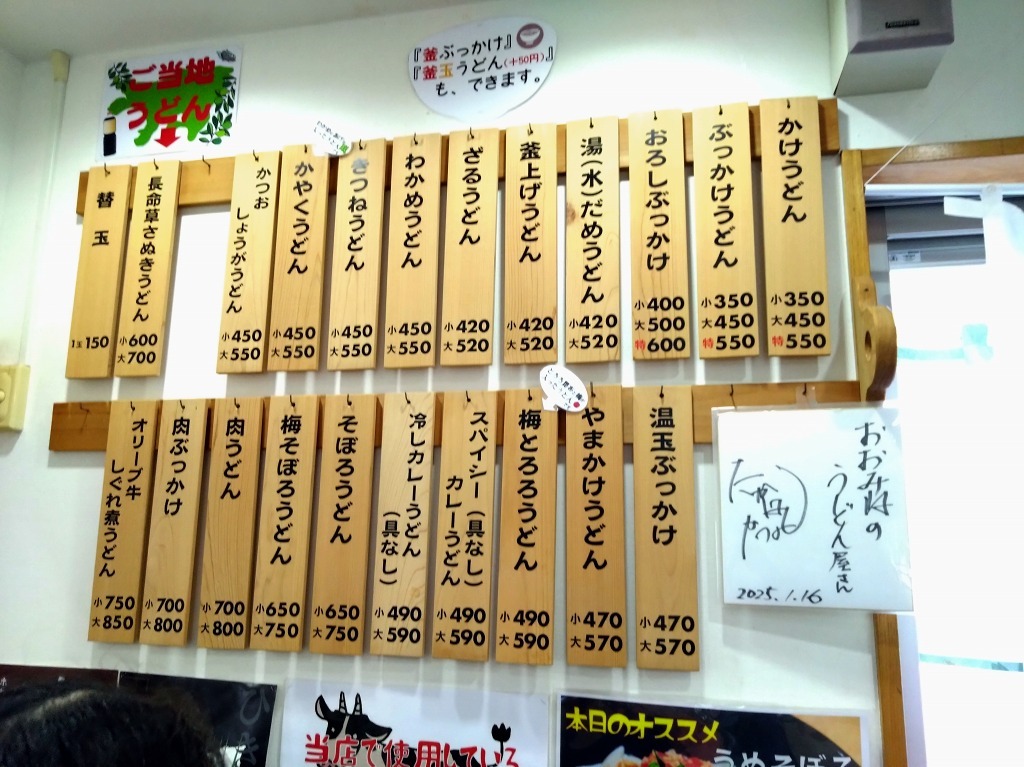 『釜ぶっかけ』
『釜玉うどん(+50円)』
も、できます。
ご当地
うどん
かけうどん
小350
大450
特550
ぶっかけうどん
小350
大450
特550
おろしぶっかけ
小400
大500
特600
湯(水)だめうどん
小420
大520
釜上げうどん
小420
大520
ざるうどん
小420
大520
わかめうどん
小450
大550
きつねうどん
小450
大550
かやくうどん
小450
大550
かつお
しょうがうどん
小450
大550
長命草さぬきうどん
小600
大700
替玉
1玉150
温玉ぶっかけ
小470
大570
やまかけうどん
小470
大570
梅とろろうどん
小490
大590
スパイシー(具なし)
カレーうどん
小490
大590
冷しカレーうどん
(具なし)
小490
大590
そぼろうどん
小650
大750
梅そぼろうどん
小650
大750
肉うどん
小700
大800
肉ぶっかけ
小700
大800
オリーブ牛
しぐれ煮うどん
小750
大850
おおみねの
うどん屋さん
2025.1.16
当店で使用している
本日のオススメ
うめそぼろ